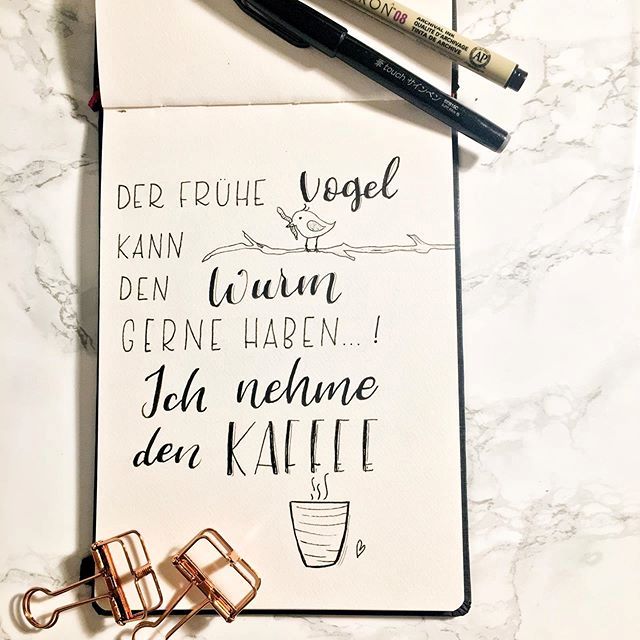 RON 08
ARCHIVAL INK
QUALITÉ D'ARCHIVAGE
TINTA DE ARCHIVO
AP
touch サインペン
DER FRÜHE Vogel
KANN
DEN Wurm
GERNE HABEN...!
Ich nehme
den KAFFEE